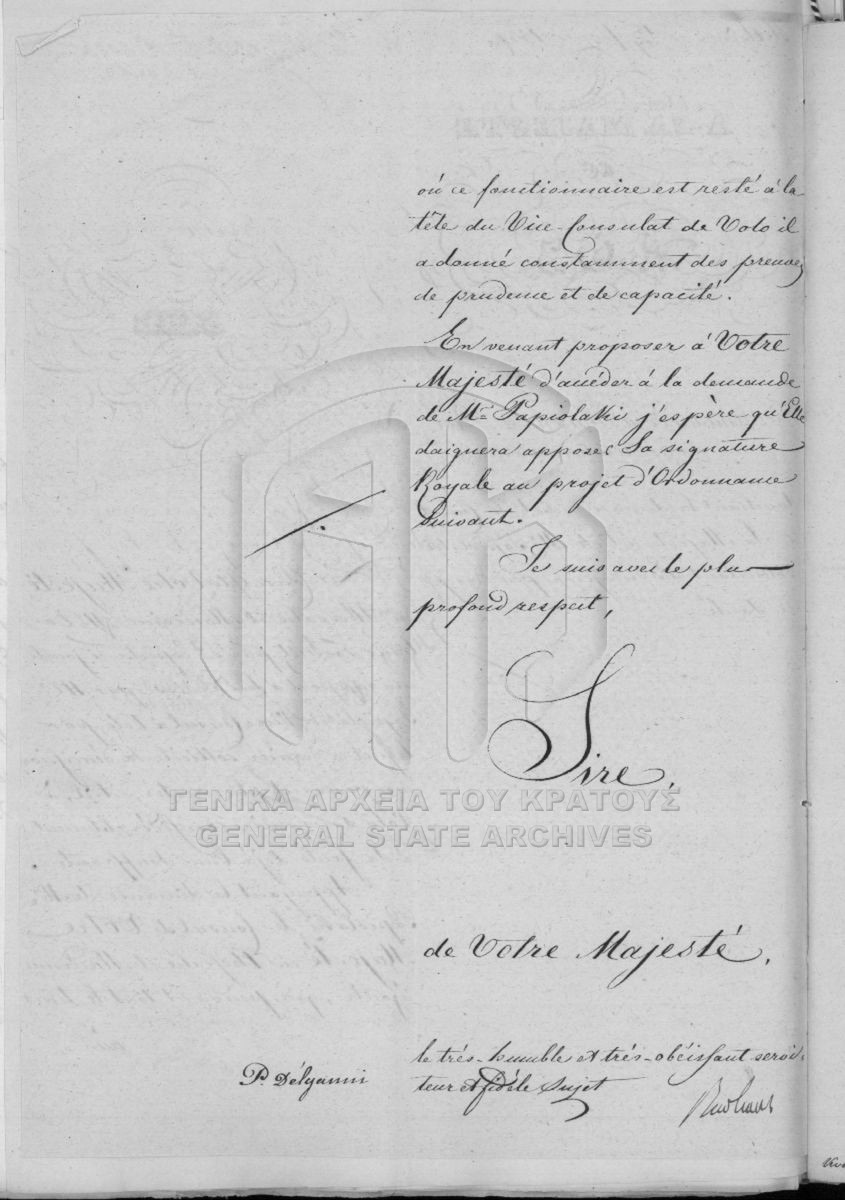 où ce fonctionnaire est resté à la
tête du Vice-Consulat de Volo il
a donné constamment des preuves
de prudence et de capacité.
En venant proposer à Votre
Majesté d'accéder à la demande
de Mr Papiolaki j'espère qu'Elle
daignera apposer Sa signature
Royale au projet d'Ordonnance
suivant.
Je suis avec le plus
profond respect,
Sire,
ΓΕΝΙΚΑ ΑΡΧΕΙΑ ΤΟΥ ΚΡΑΤΟΥΣ
GENERAL STATE ARCHIVES
de Votre Majesté,
le très-humble et très-obéissant servi-
teur et fidèle sujet
P. Délyanni